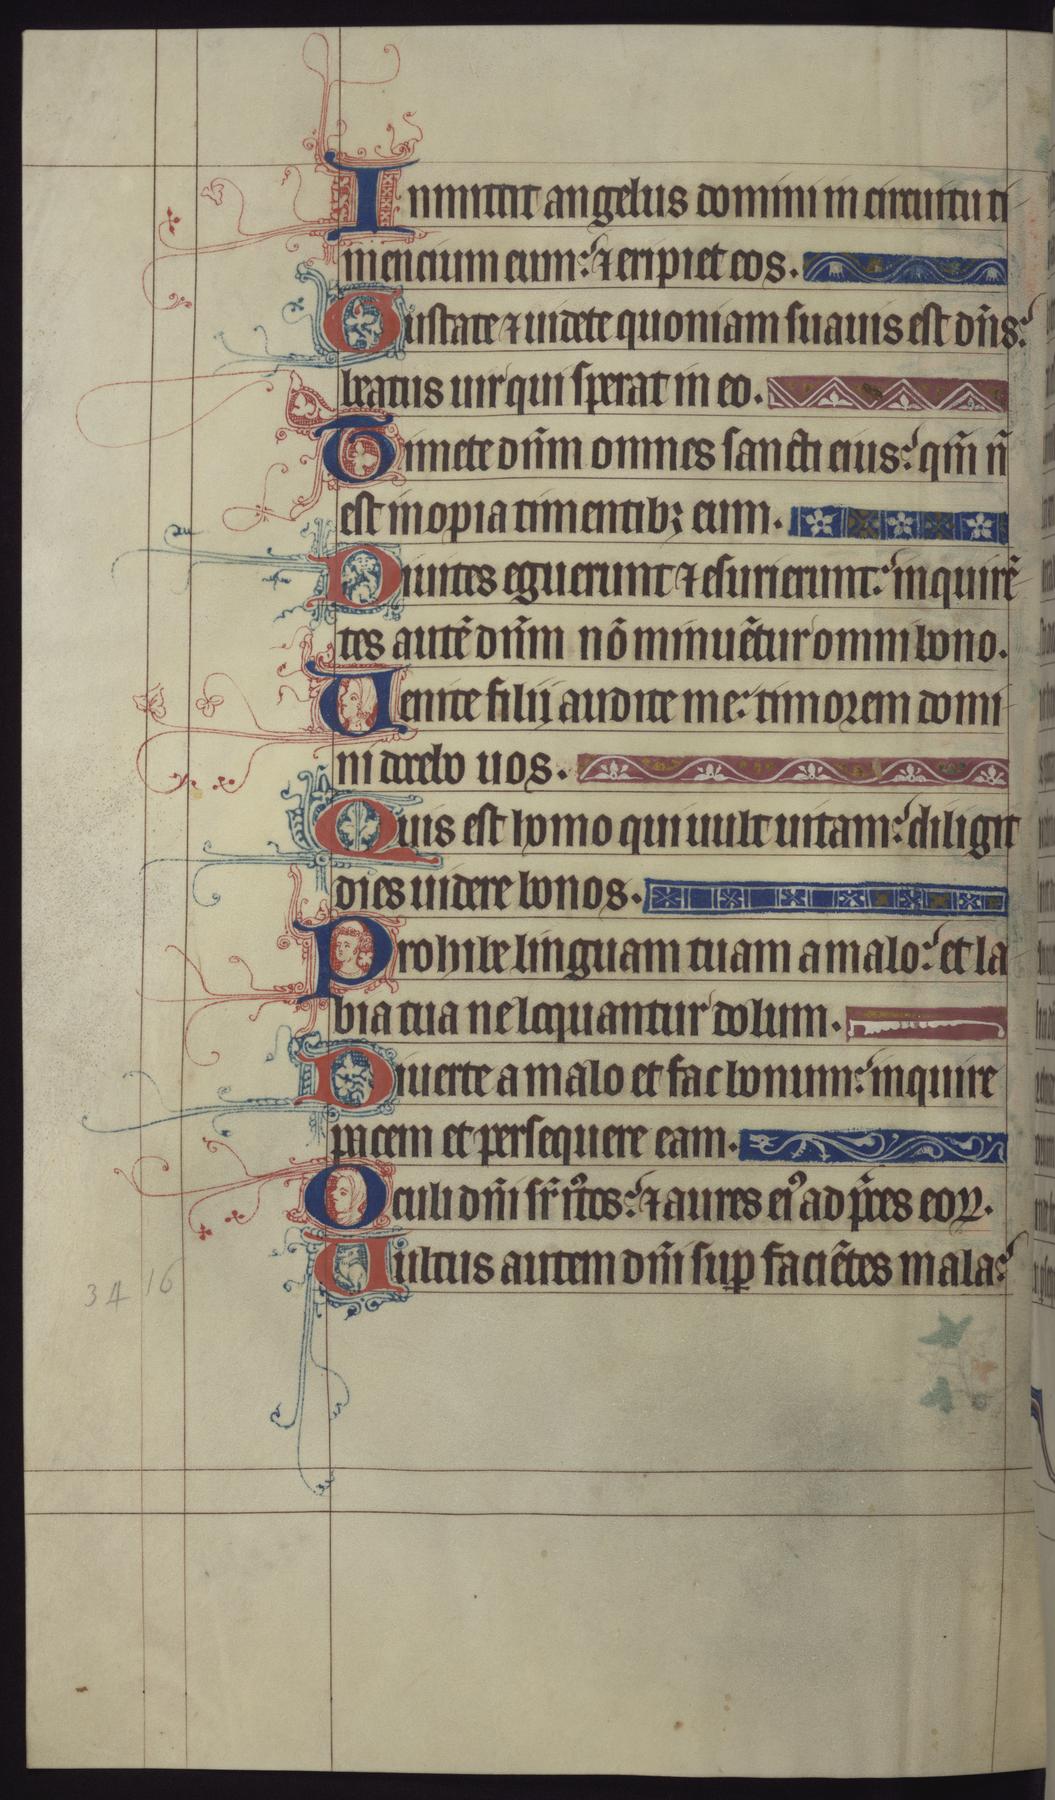 Inmittit angelus domini in circuitu ti
mencium eum: ⁊ eripiet eos.
Gustate ⁊ uidete quoniam suauis est dn̄s:
beatus uir qui sperat in eo.
Timete dn̄m omnes sancti eius: qm̄ n̄
est inopia timentibꝫ eum.
Diuites eguerunt ⁊ esurierunt: inquirē
tes autē dn̄m nō minuētur omni bono.
Uenite filij audite me: timorem domi
ni docebo uos.
Quis est homo qui uult uitam: diligit
dies uidere bonos.
Prohibe linguam tuam a malo: et la
bia tua ne loquantur dolum.
Diuerte a malo et fac bonum: inquire
pacem et persequere eam.
Oculi dn̄i sr̄ iustos: ⁊ aures eiꝰ ad p̄ces eoꝝ.
Uultus autem dn̄i suꝑ faciētes mala:
34 16